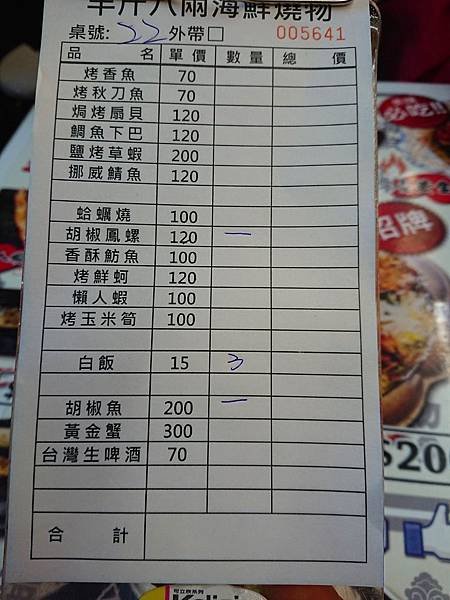 半斤八兩海鮮燒物
桌號: 22 外帶□ 005641
品 名 單價 數量 總 價
烤香魚 70
烤秋刀魚 70
焗烤扇貝 120
鯛魚下巴 120
鹽烤草蝦 200
挪威鯖魚 120
蛤蠣燒 100
胡椒鳳螺 120 一
香酥魴魚 100
烤鮮蚵 120
懶人蝦 100
烤玉米筍 100
白飯 15 3
胡椒魚 200 一
黃金蟹 300
台灣生啤酒 70
合 計
必吃
招牌
$200